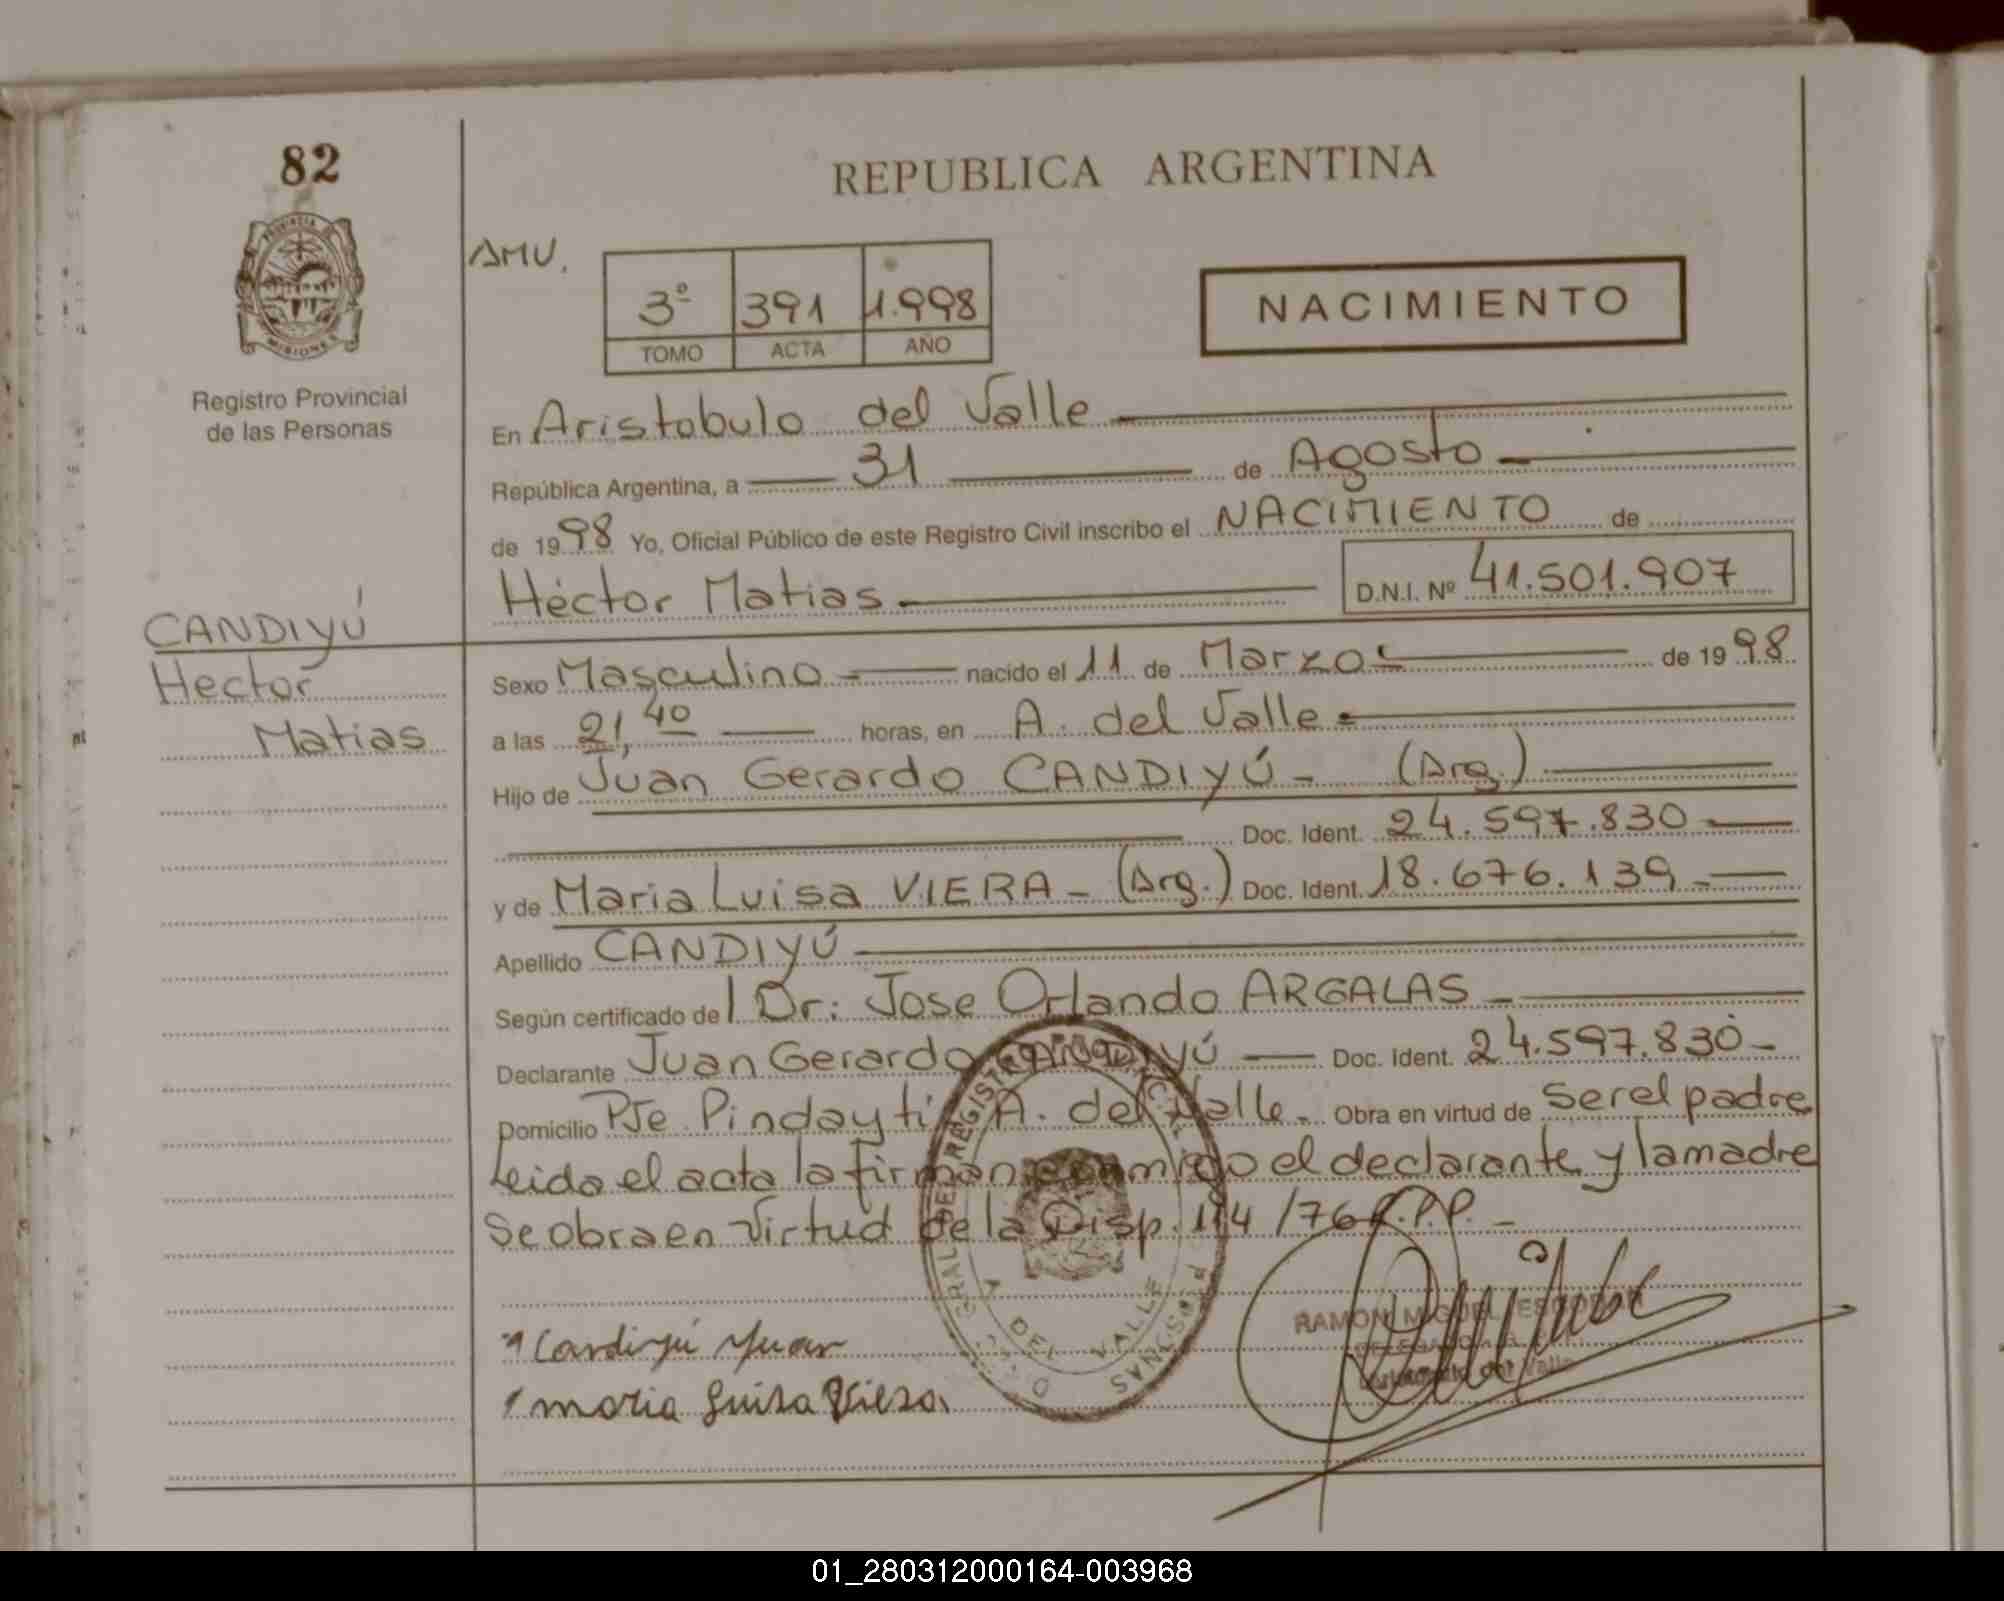 82
REPUBLICA ARGENTINA
PROVINCIA DE
MISIONES
Registro Provincial
de las Personas
AMU.
3º 391 1.998
TOMO ACTA AÑO
NACIMIENTO
En Aristobulo del Valle
República Argentina, a 31 de Agosto
de 1998 Yo, Oficial Público de este Registro Civil inscribo el NACIMIENTO de
Héctor Matias D.N.I. Nº 41.501.907
CANDIYÚ
Hector
Matias
Sexo Masculino nacido el 11 de Marzo de 1998
a las 21,40 horas, en A. del Valle
Hijo de Juan Gerardo CANDIYÚ - (Arg.)
Doc. Ident. 24.597.830
y de Maria Luisa VIERA - (Arg.) Doc. Ident. 18.676.139
Apellido CANDIYÚ
Según certificado del Dr: Jose Orlando ARGALAS
Declarante Juan Gerardo CANDIYÚ Doc. Ident. 24.597.830-
Domicilio Pje. Pindayti A. del Valle - Obra en virtud de Ser el padre
Leida el acta la firman conmigo el declarante y la madre
Se obra en virtud de la Disp. 114/76 R.P.P. -
A DEL VALLE
RAMON MIGUEL ESCOBAR
DELEGADO
Aristobulo del Valle
Candiyú Juan
maria Luisa Viera
01_280312000164-003968